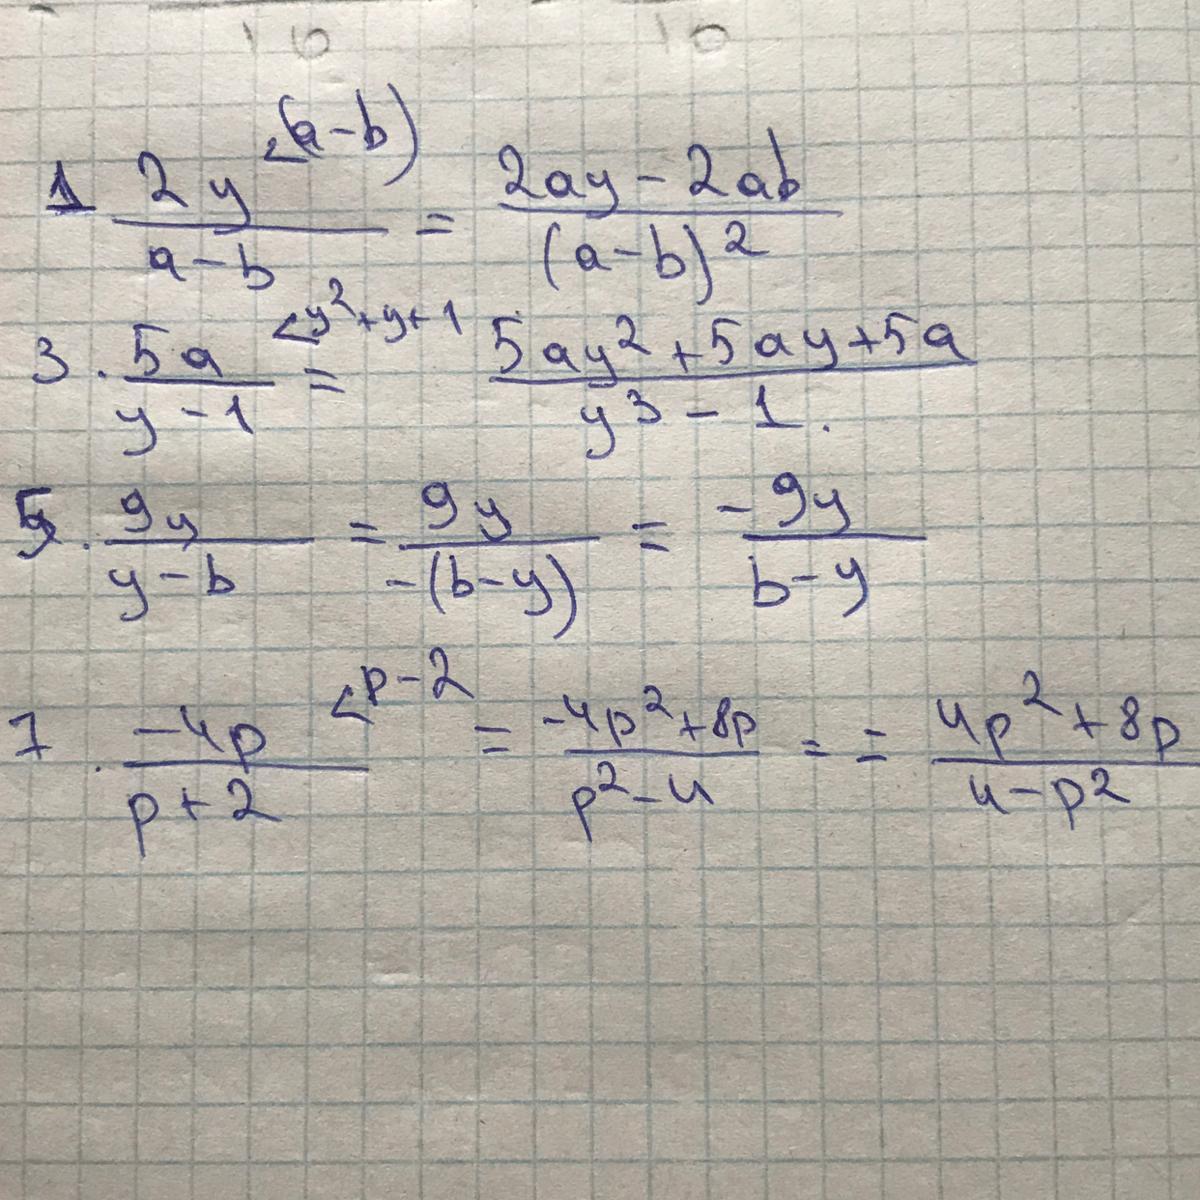 1 2y/(a-b) <(a-b) = (2ay - 2ab)/(a-b)²
3. 5a/(y-1) <y²+y+1 = (5ay²+5ay+5a)/(y³-1).
5. 9y/(y-b) = 9y/(-(b-y)) = -9y/(b-y)
7. -4p/(p+2) <p-2 = (-4p²+8p)/(p²-4) = = (4p²+8p)/(4-p²)